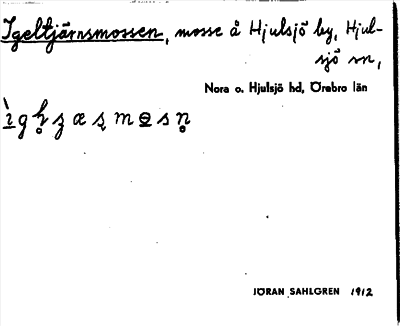 Igeltjärnsmossen, mosse å Hjulsjö by, Hjul-
sjö sn,
Nora o. Hjulsjö hd, Örebro län
JÖRAN SAHLGREN 1912